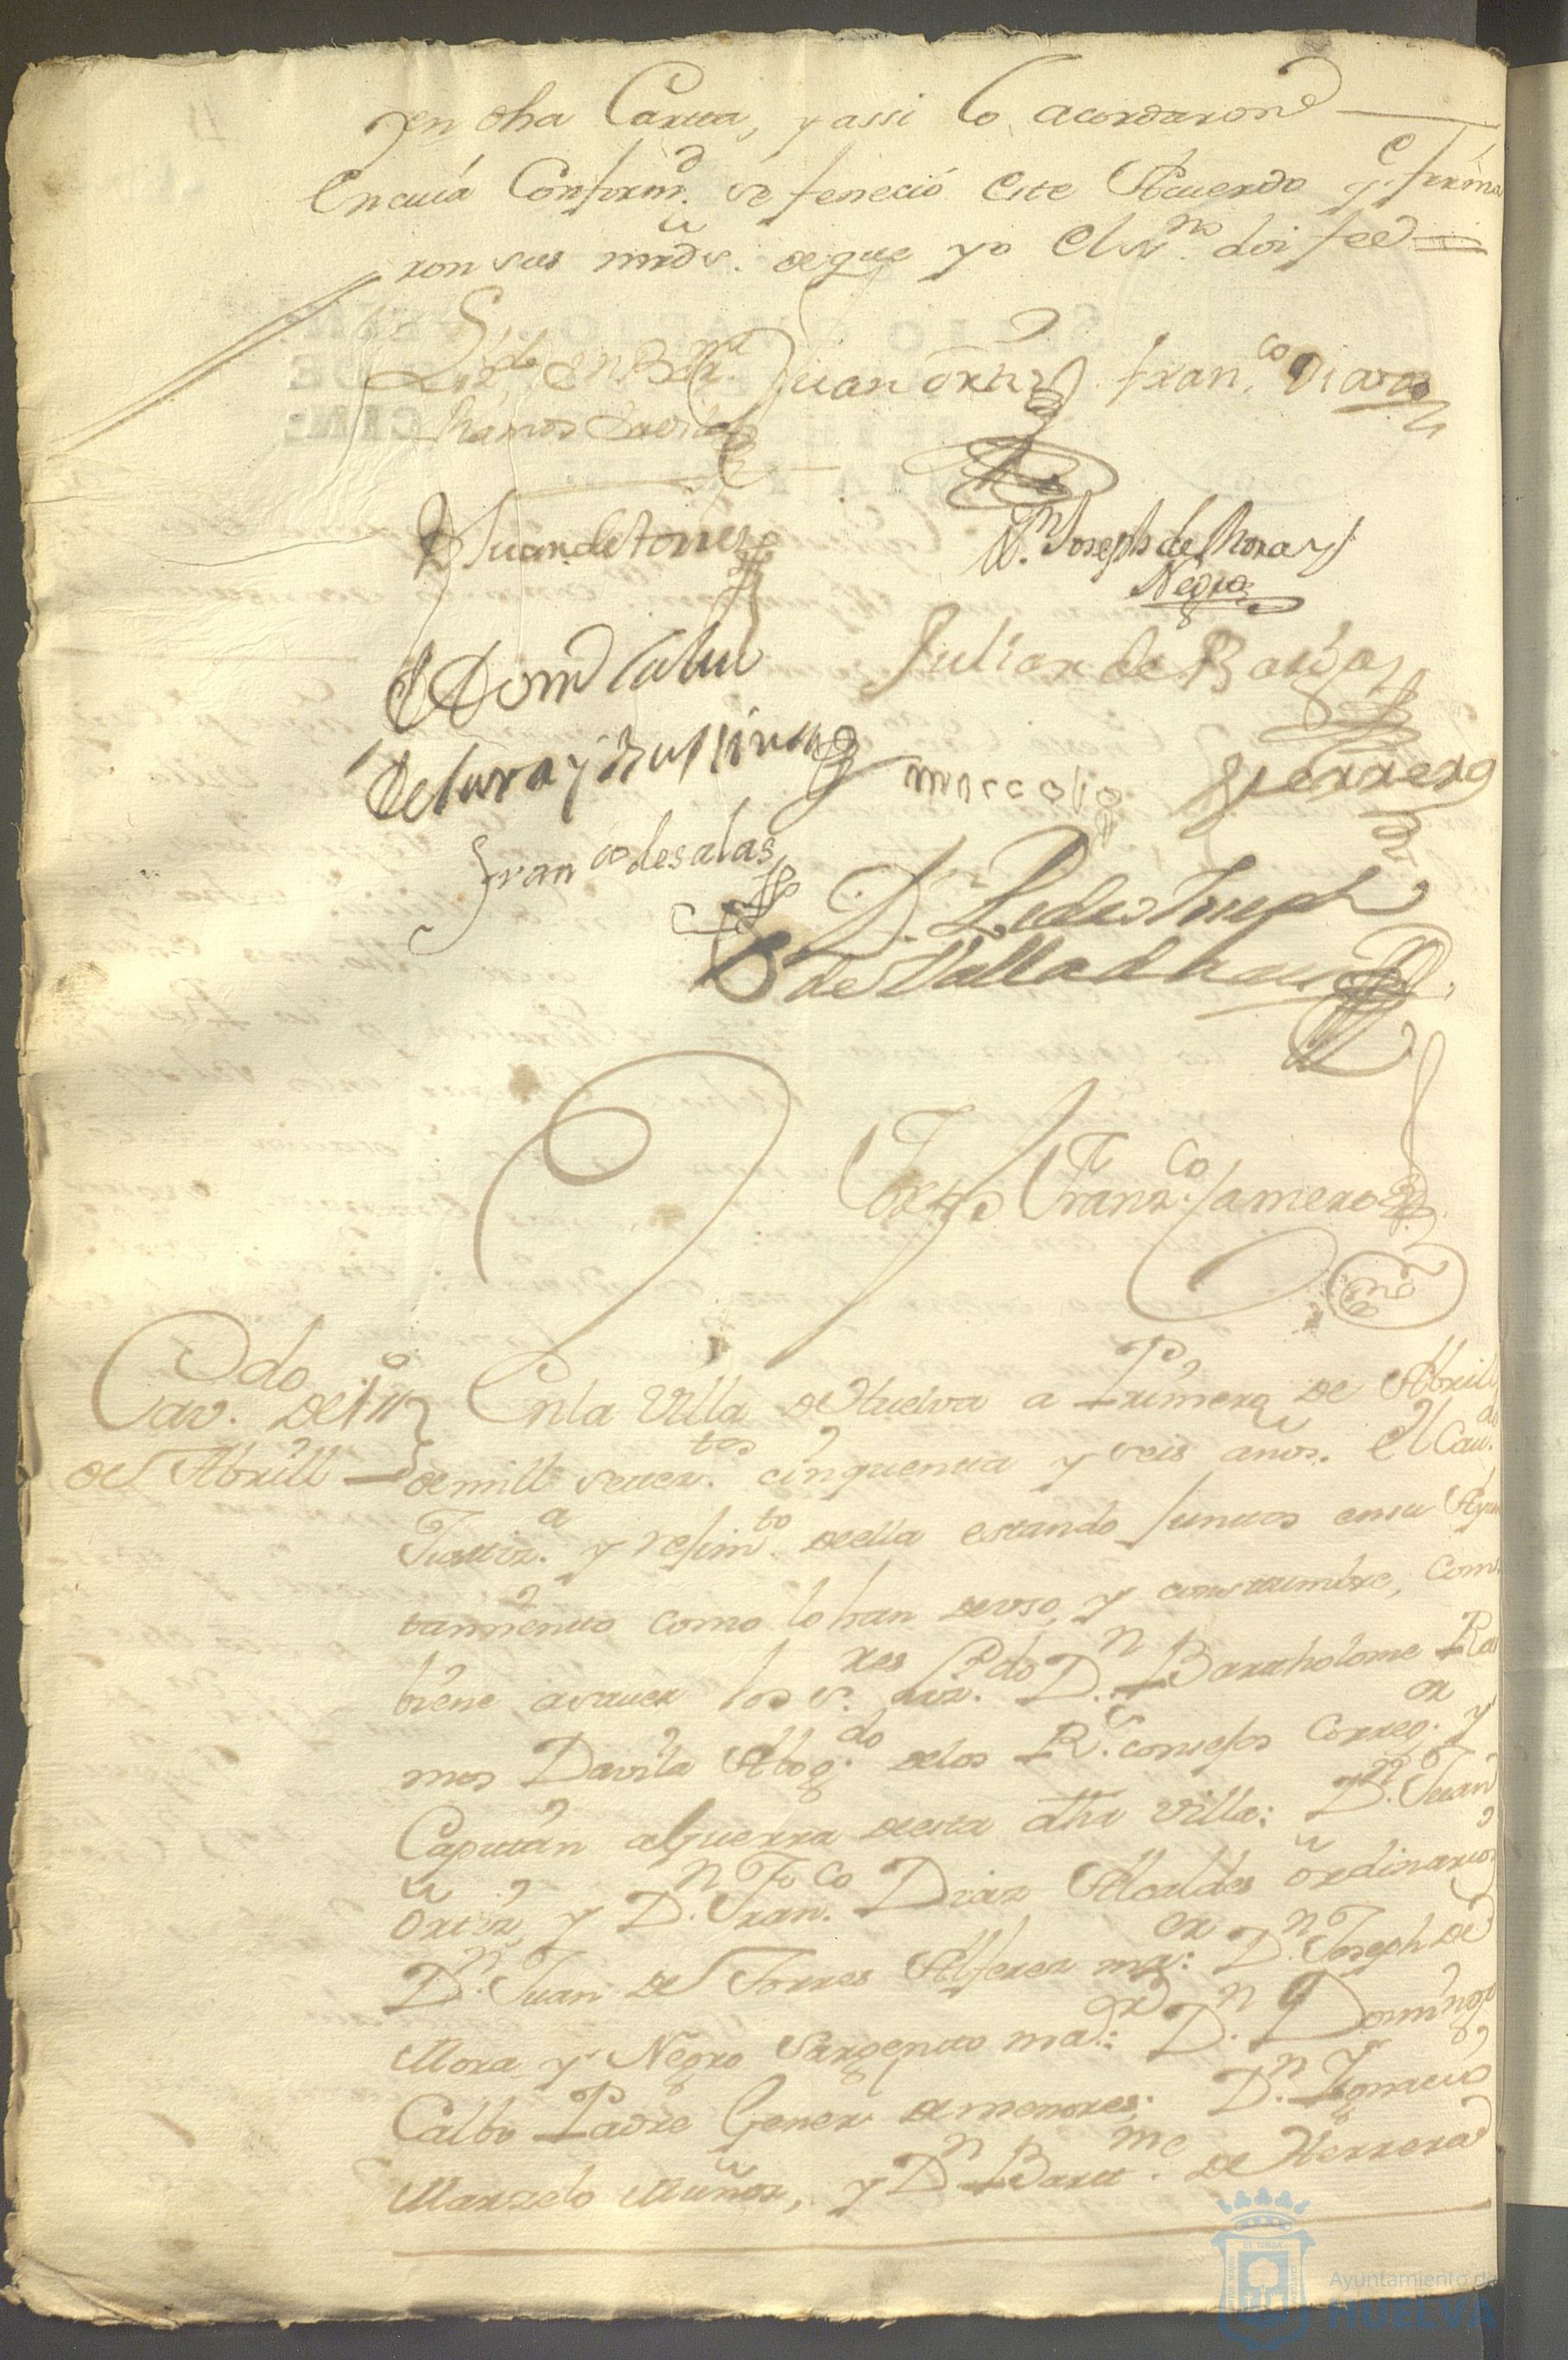 en dha Carta, y assi lo acordaron
En cuia Conform.d se feneció este Acuerdo y firma
ron sus mrds. de que yo el ssno. doi fee
Lizdo. Dn Barme.
Ramos Davila
Juan Ortiz
Franco. Diaz
D Juan de torres
Dn. Joseph de Mora y
Negro
Domo Calbo
Julian de
Franco de salas
Dn Pedro Joseph
de Valladares
Franzco. Romero
ssno
Cavdo. de 1o
de Abrill
En la Villa de Huelva a Primero de Abrill
de mill seteztos. cinquenta y seis años. El Cavdo.
Justiza. y rejimto. de ella estando juntos en su Ayun
tamiento como lo han de uso, y constumbre, com
biene a saver los sres. Lizdo. Dn. Bartholome Ra
mos Davila Abogdo. de los Rs. consejos Correxor. y
Capitan a Guerra de esta dha Villa: Dn. Juan
Ortiz, y Dn. Franco. Diaz Alcaldes ordinarios
Dn. Juan de Torres Alferez maor: Dn. Joseph de
Mora y Negro Sargento maor: Dn. Domingo
Calbo Padre Gener de menores: Dn. Ignacio
Marzelo Muñoz, y Dn Bartme. de Herrera
Ayuntamiento de
HUELVA